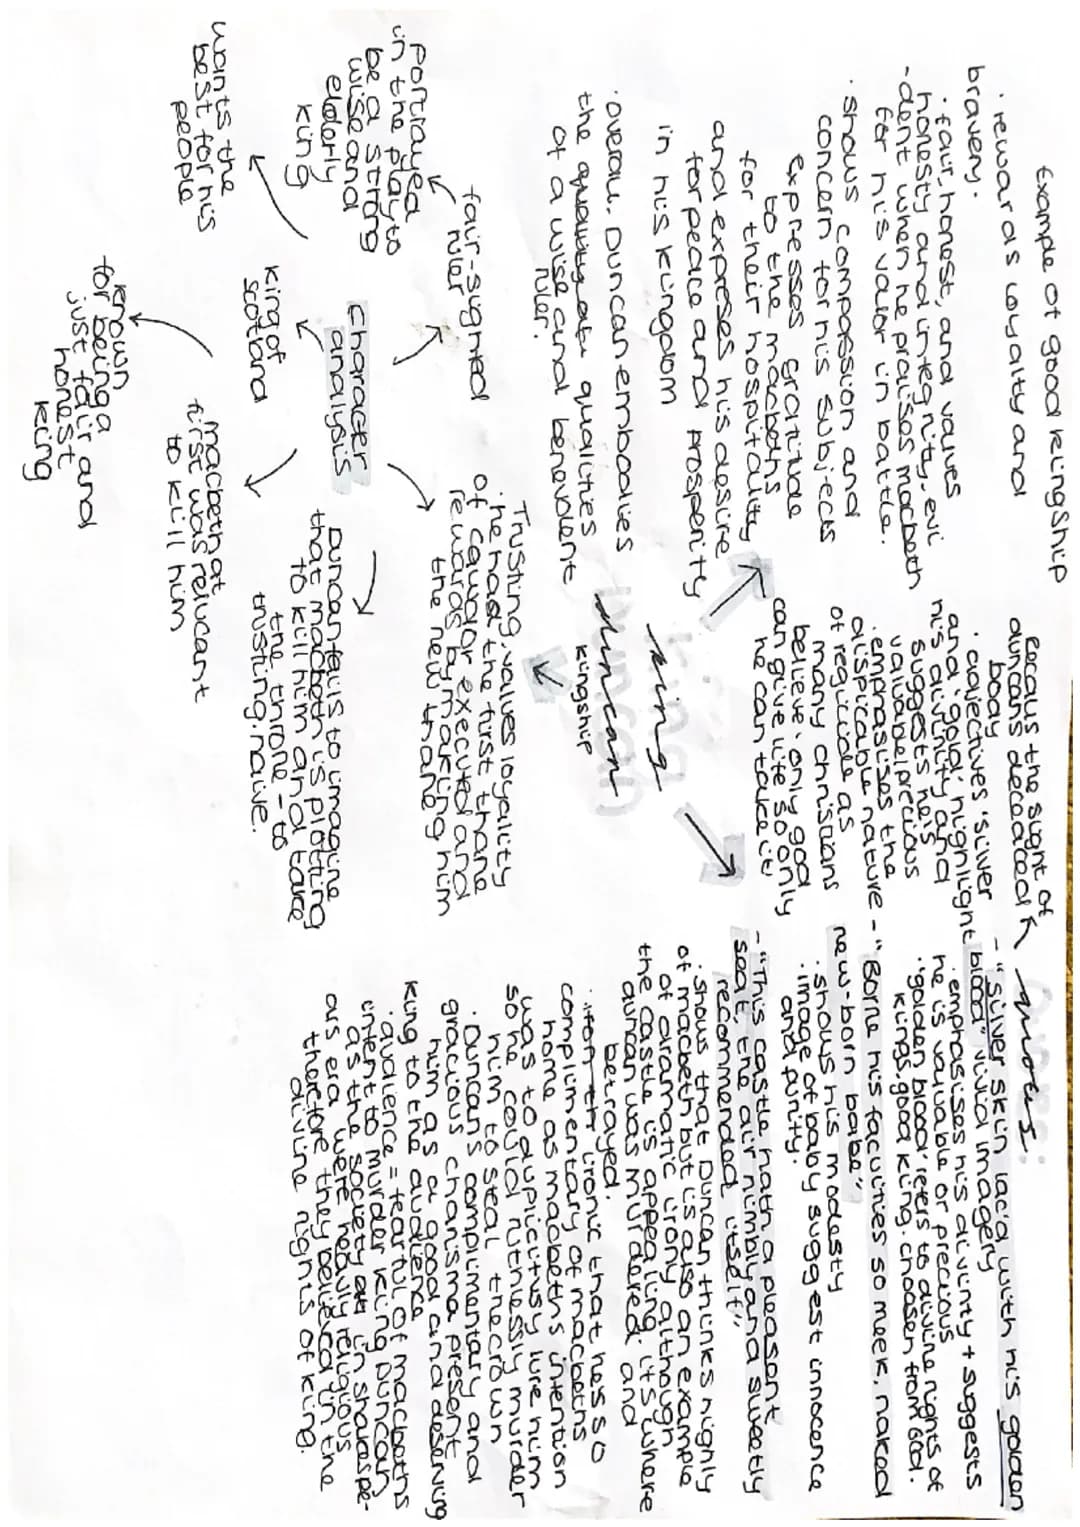 king
duncan
kingship
Example of good kingship
· rewards loyality and
bravery.
· fair, honest, and values
honesty and integrity. evi
-dent when he praises macbeth
for his valor in battle.
· shows compassion and
concern for his subjects
expresses gratitude
to the macbeths
for their hospitality
and expreses his desire
for peace and prosperity
in his kingdom
· overall, Duncan embodies
the quality of a qualities
of a wise and benevolent
ruler.
character
analysis
fair-sighted
ruler
Portrayed
in the play to
be a strong
wise and
elderly
king
wants the
best for his
people
king of
scotland
known
for being a
just fair and
honest
king
macbeth at
first was relucant
to kill him
Duncan fails to imagine
that macbeth is plotting
to kill him and take
the throne - to
trusting, naive.
Trusting, values loyality
· he had the first thane
of cawdor executed and
rewards by making him
the new thane
quotes:
focus the sight of
duncans deceaced
body
- "silver skin lac'd with his golden
blood" vivid imagery
· emphasises his divinity + suggests
he is valuable or precious
· 'golden blood' refers to divine rights of
kings. good king. choosen from God.
· adjectives 'silver
and 'gold' highlight
his divinity and
suggests he is
valuabel precious
· emphasises the
dispicable nature
of regicide as
many christians
believe, only god
can give life so only
he can take it
- "Borne his faculties so meek, naked
new-born babe"
· shows his modesty
· image of baby suggest innocence
and purity.
- "This castle hath a pleasent
seat, the air nimbly and sweetly
recommended itself"
· shows that Duncan thinks highly
of macbeth but is also an example
of dramatic irony although
the castle is appealing its where
duncan was murdered and
betrayed.
· iron ironic that hes so
complimentary of macbeths
home as macbeths intention
was to dupicitusy lure him
so he could ruthlessly murder
him to steal the crown
· Duncan's complimentary and
gracious charisma present
him as a good and deserving
king to the audience
· audience = fearful of macbeths
intent to murder king Duncan
as the society in shakespe-
ars era were heavily religious
therefore they believed in the
divine rights of king.